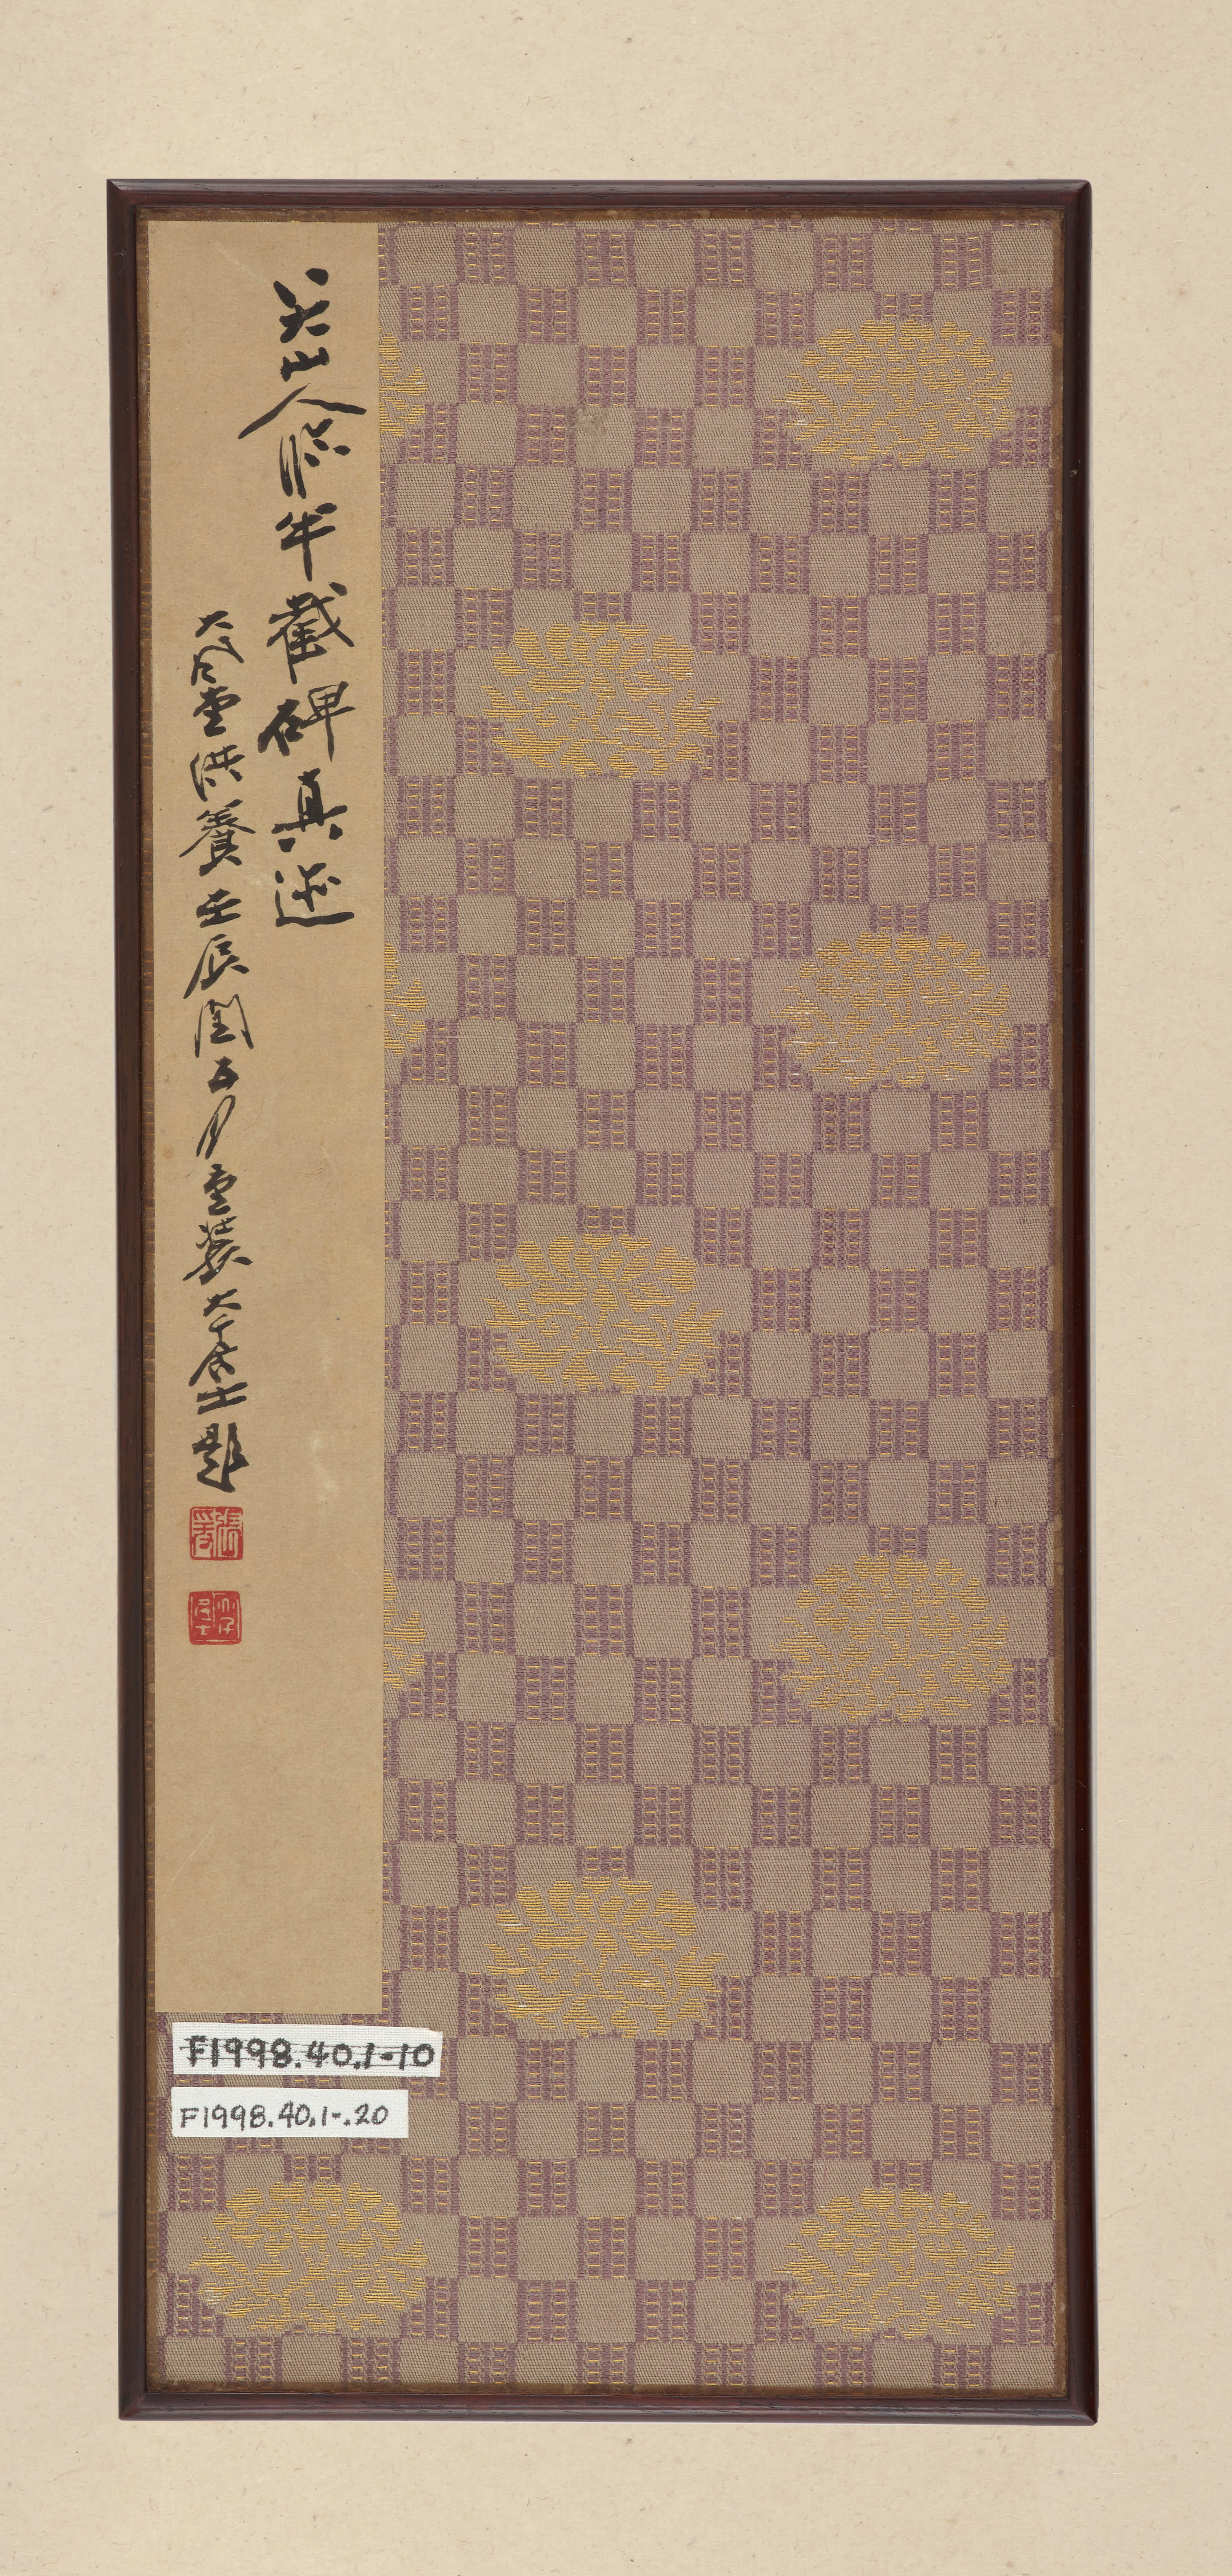 八大山人臨半截碑真迹
大風堂供養壬辰閏五月重裝大千居士題
張爰
大千居士
F1998.40.1-10
F1998.40.1-.20